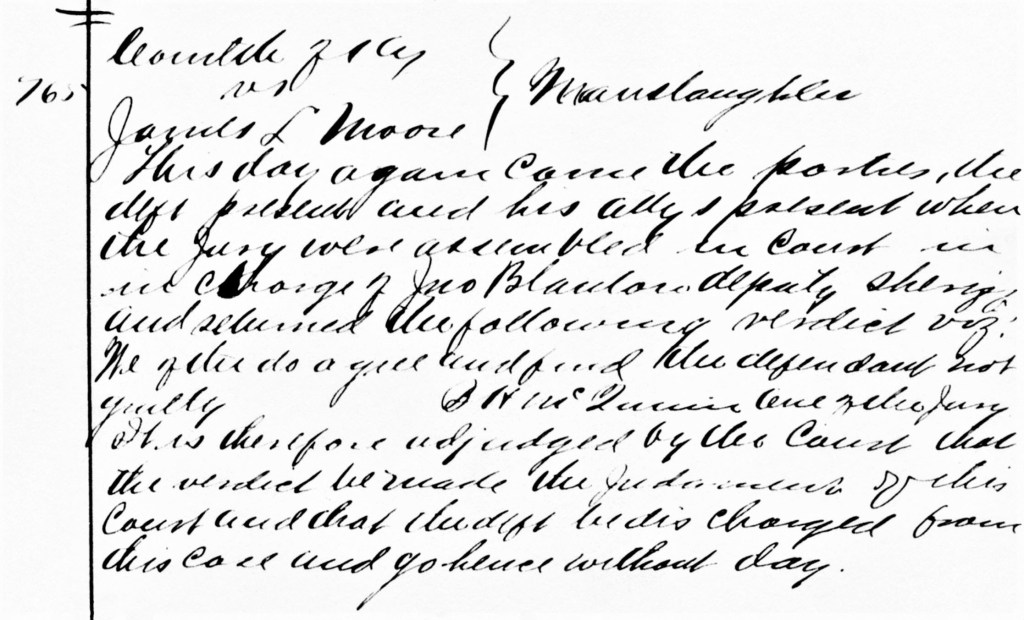 Comwlth of Ky
765 vs } Manslaughter
James L Moore
This day again came the parties, the
deft present and his attys present when
the Jury were assembled in Court in
in charge of Jno Blanton deputy sheriff
and returned the following verdict viz:
We of the do agree and find the defendant not
guilty B H McQuinn One of the Jury
It is therefore adjudged by the Court that
the verdict be made the Judgment of this
Court and that the deft be discharged from
this case and go hence without day.